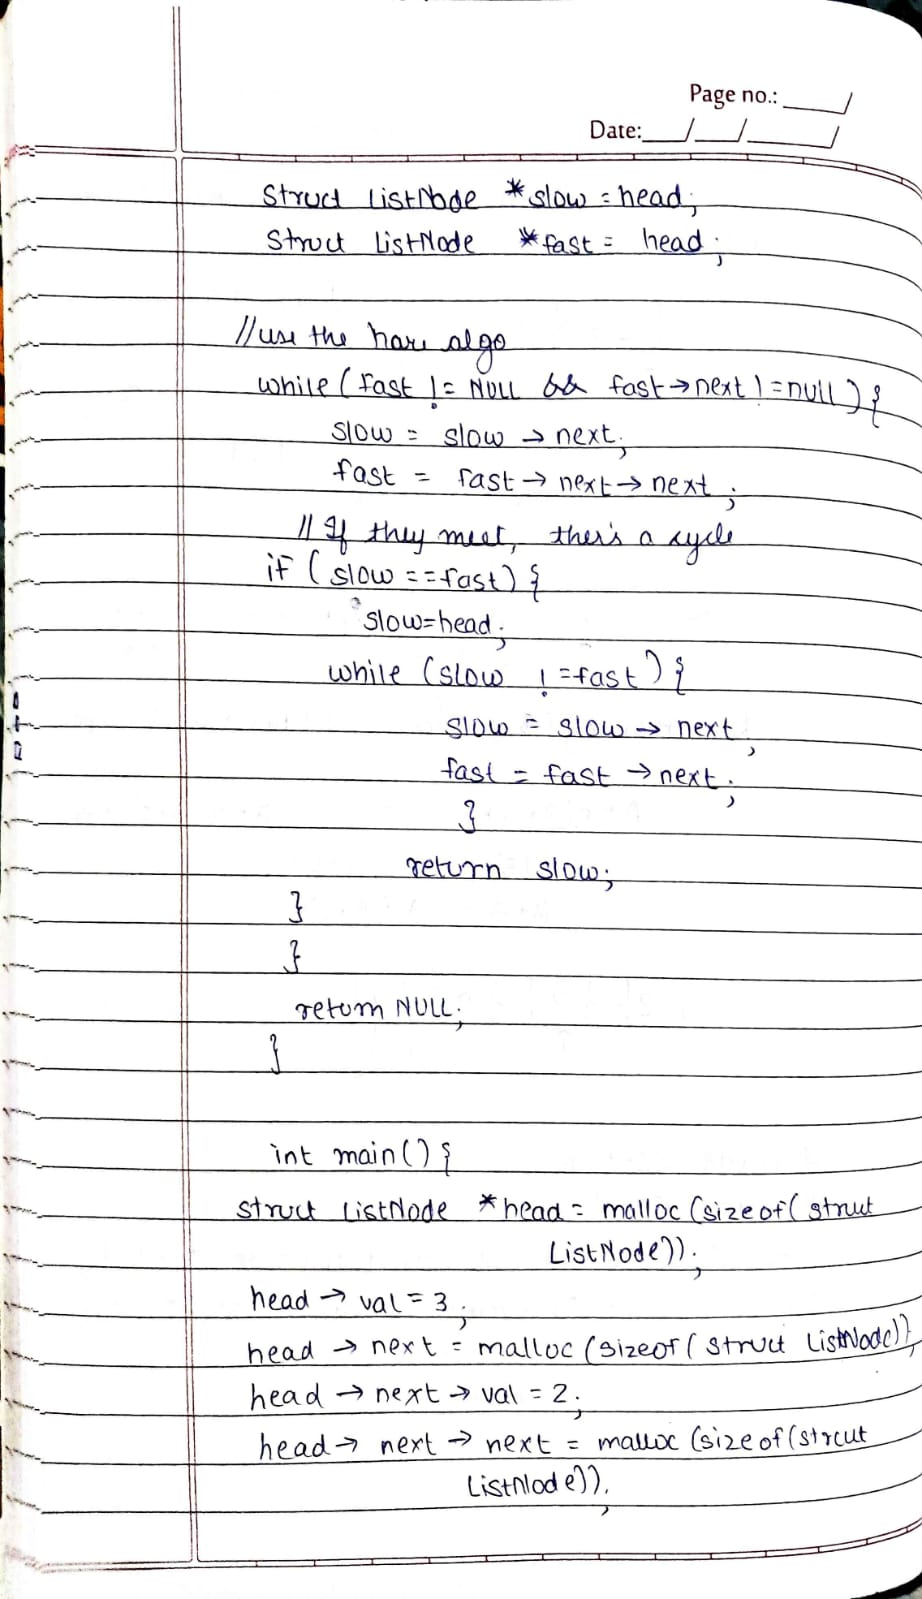 Page no.:
Date:
Struct ListNode *slow = head;
Struct ListNode *fast = head;
//use the hare algo
while (fast != NULL && fast→next != null) {
slow = slow → next;
fast = fast → next → next;
// If they meet, ther's a cycle
if (slow == fast) {
slow=head;
while (slow != fast) {
slow = slow → next;
fast = fast → next;
}
return slow;
}
}
return NULL;
}
int main() {
struct ListNode *head = malloc (sizeof( struct
ListNode));
head → val = 3;
head → next = malloc (sizeof( struct ListNode));
head → next → val = 2;
head → next → next = malloc (sizeof(strcut
ListNode));